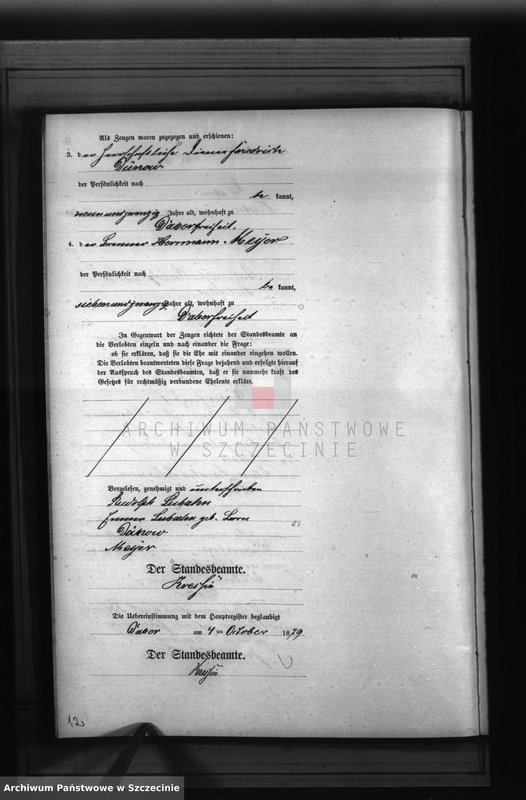 Als Zeugen waren zugezogen und erschienen:
3. der herrschaftliche Diener
Dünow
der Persönlichkeit nach
be kannt,
Jahre alt, wohnhaft zu
Daberfreiheit.
4. der Herrmann Meyer
der Persönlichkeit nach
be kannt,
siebenundzwanzig Jahre alt, wohnhaft zu
Daberfreiheit
In Gegenwart der Zeugen richtete der Standesbeamte an
die Verlobten einzeln und nach einander die Frage:
ob sie erklären, daß sie die Ehe mit einander eingehen wollen.
Die Verlobten beantworteten diese Frage bejahend und erfolgte hierauf
der Ausspruch des Standesbeamten, daß er sie nunmehr kraft des
Gesetzes für rechtmäßig verbundene Eheleute erkläre.
ARCHIWUM PAŃSTWOWE
W SZCZECINIE
Vorgelesen, genehmigt und unterschrieben
Rudolph
geb.
Dünow
Meyer
Der Standesbeamte.
Kressin
Die Uebereinstimmung mit dem Hauptregister beglaubigt
Daber am 4 ten October 1879
Der Standesbeamte.
Kressin
12
Archiwum Państwowe w Szczecinie